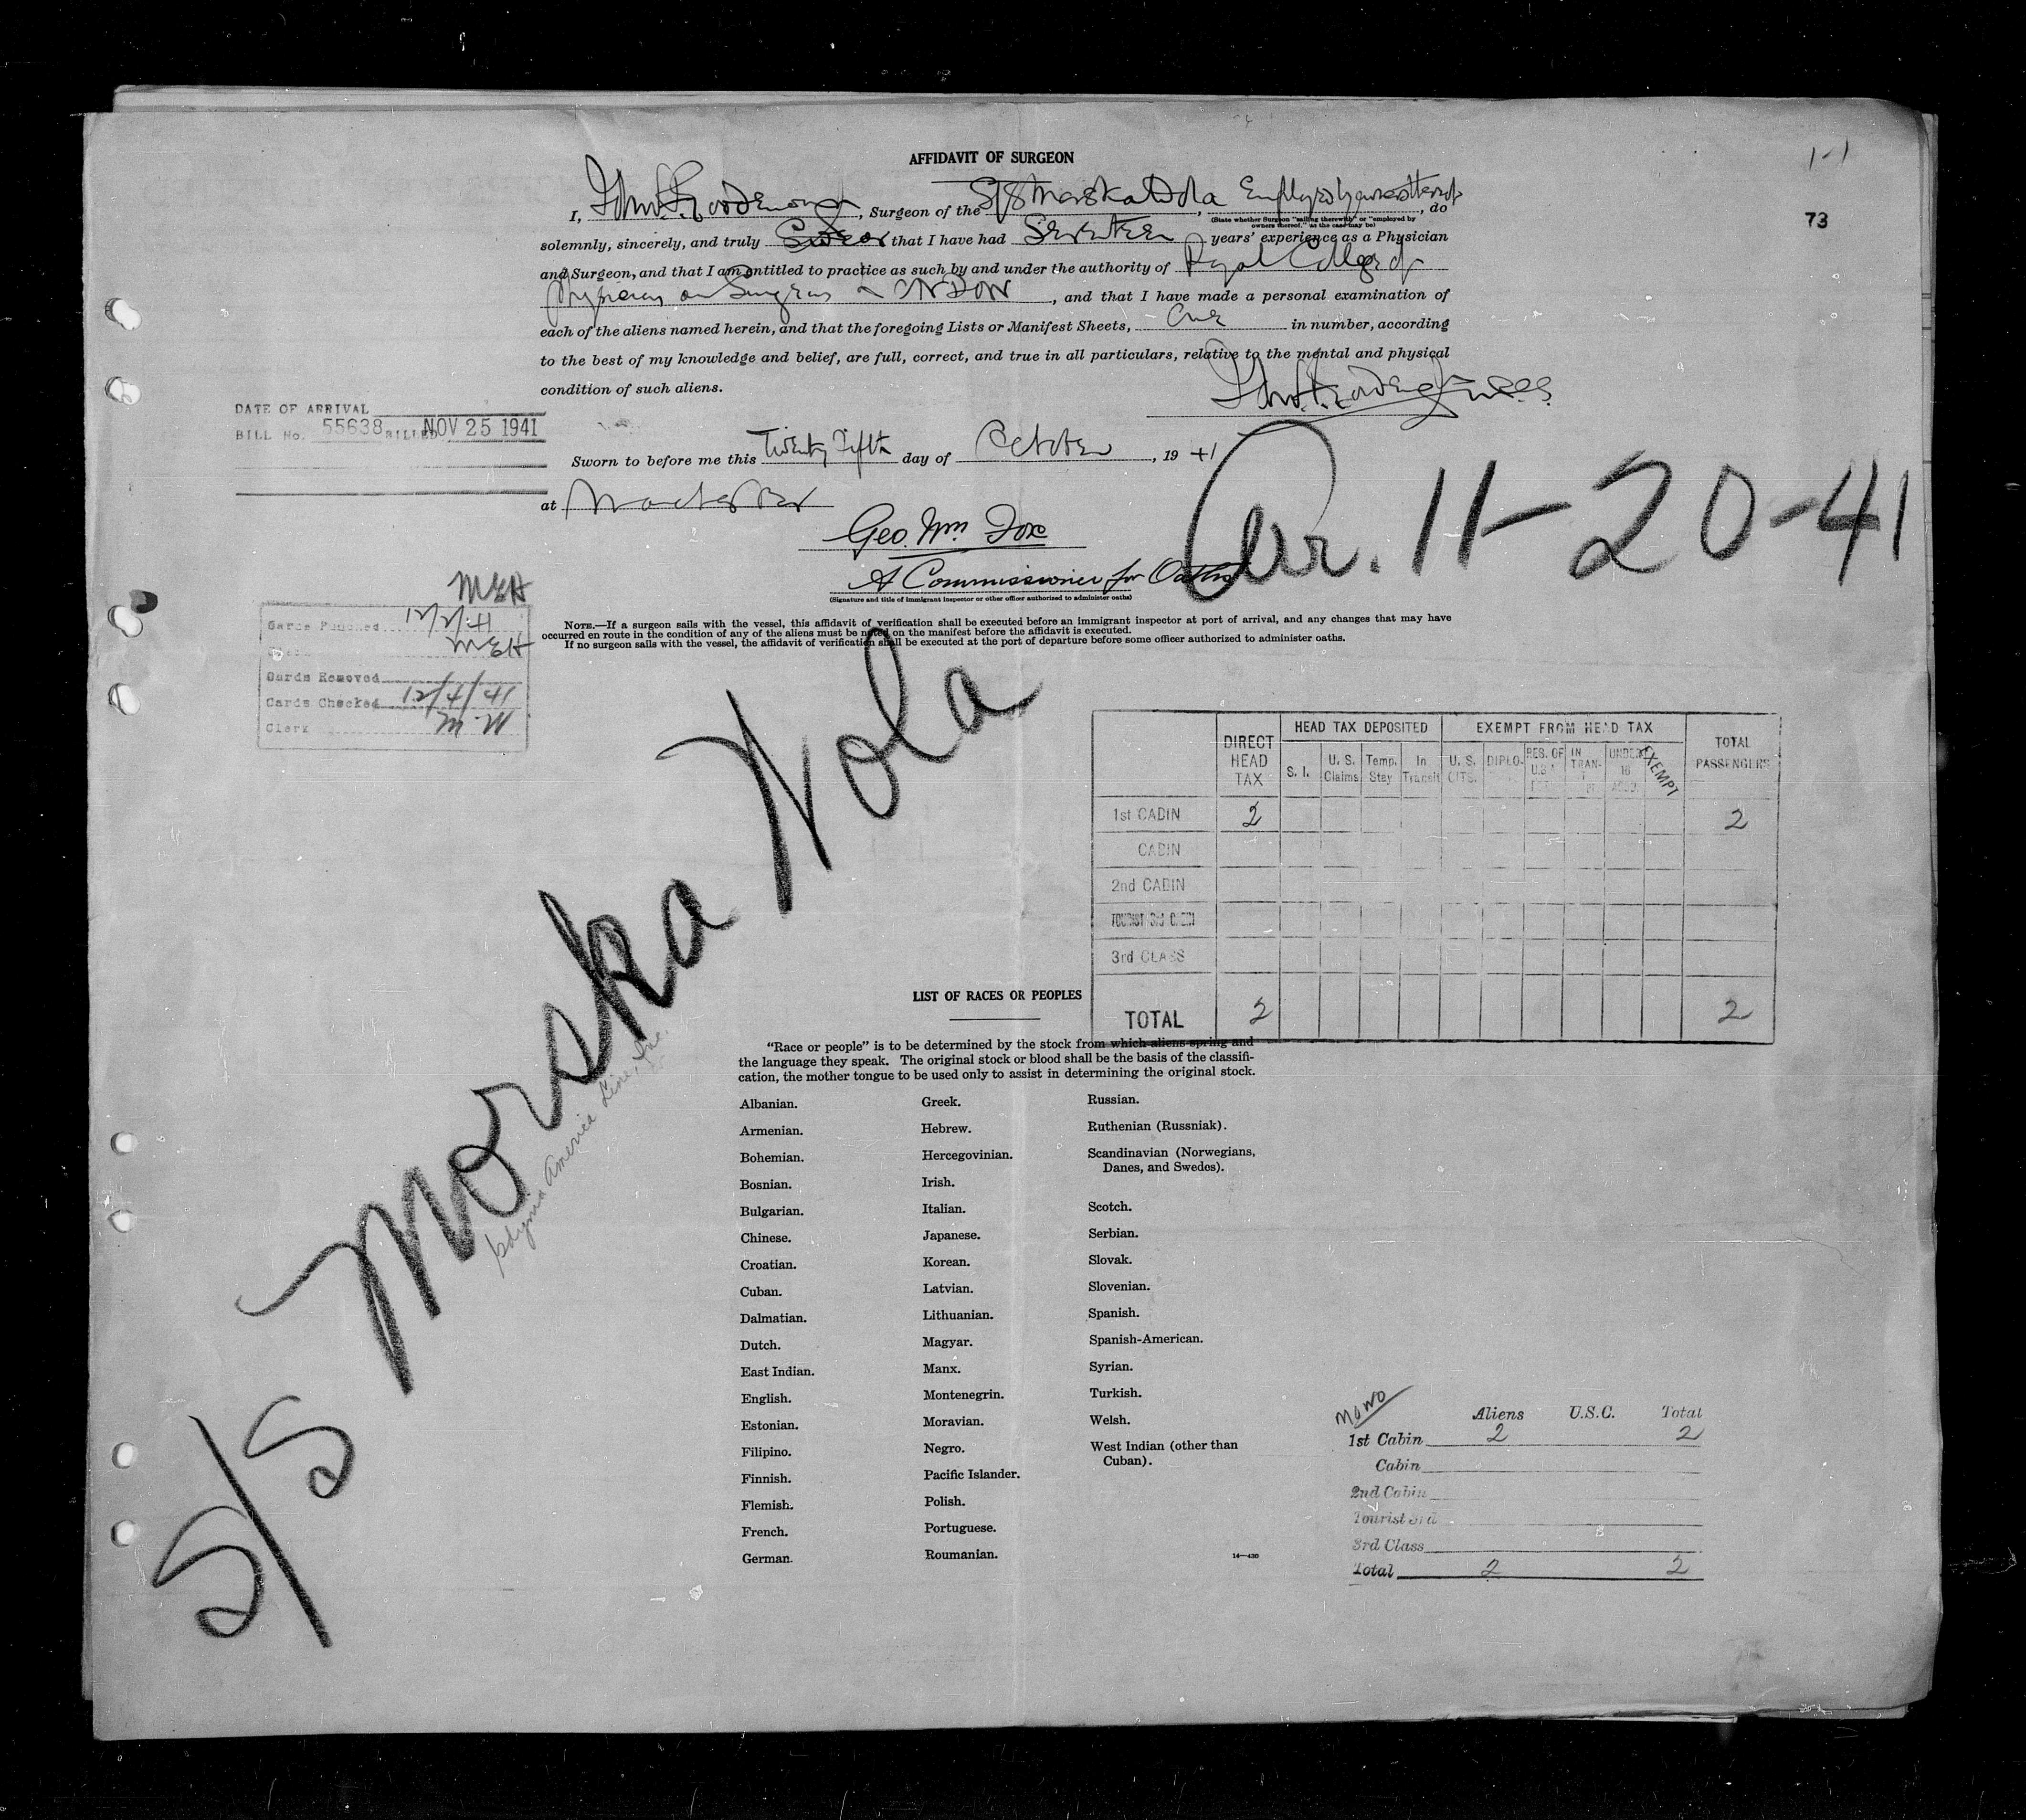 AFFIDAVIT OF SURGEON
1-1
73
I, , Surgeon of the S/S Morska Wola, Employed by owners thereof, do
(State whether Surgeon "sailing therewith" or "employed by owners thereof," as the case may be)
solemnly, sincerely, and truly Swear that I have had Seventeen years' experience as a Physician
and Surgeon, and that I am entitled to practice as such by and under the authority of Royal College of
, and that I have made a personal examination of
each of the aliens named herein, and that the foregoing Lists or Manifest Sheets, One in number, according
to the best of my knowledge and belief, are full, correct, and true in all particulars, relative to the mental and physical
condition of such aliens.
DATE OF ARRIVAL
BILL No. 55638 BILLED NOV 25 1941
Sworn to before me this Twenty Fifth day of October, 19 41
at Manchester
Geo. Wm. Fox
A Commissioner for Oaths
(Signature and title of immigrant inspector or other officer authorized to administer oaths)
Arr. 11-20-41
NOTE.—If a surgeon sails with the vessel, this affidavit of verification shall be executed before an immigrant inspector at port of arrival, and any changes that may have
occurred en route in the condition of any of the aliens must be noted on the manifest before the affidavit is executed.
If no surgeon sails with the vessel, the affidavit of verification shall be executed at the port of departure before some officer authorized to administer oaths.
MEH
Cards Punched 12/2/41
MEH
Cards Removed
Cards Checked 12/4/41
Clerk MW
S/S Morska Wola
Gdynia America Line, Inc.
DIRECT HEAD TAX
HEAD TAX DEPOSITED
EXEMPT FROM HEAD TAX
TOTAL PASSENGERS
S. I.
U. S. Claims
Temp. Stay
In Transit
U. S. CITS.
DIPLO-
RES. OF U.S.A.
IN TRAN-
UNDER 16
EXEMPT
1st CABIN 2 2
CABIN
2nd CABIN
TOURIST 3rd CABIN
3rd CLASS
TOTAL 2 2
LIST OF RACES OR PEOPLES
"Race or people" is to be determined by the stock from which aliens spring and
the language they speak. The original stock or blood shall be the basis of the classifi-
cation, the mother tongue to be used only to assist in determining the original stock.
Albanian.
Armenian.
Bohemian.
Bosnian.
Bulgarian.
Chinese.
Croatian.
Cuban.
Dalmatian.
Dutch.
East Indian.
English.
Estonian.
Filipino.
Finnish.
Flemish.
French.
German.
Greek.
Hebrew.
Hercegovinian.
Irish.
Italian.
Japanese.
Korean.
Latvian.
Lithuanian.
Magyar.
Manx.
Montenegrin.
Moravian.
Negro.
Pacific Islander.
Polish.
Portuguese.
Roumanian.
Russian.
Ruthenian (Russniak).
Scandinavian (Norwegians,
Danes, and Swedes).
Scotch.
Serbian.
Slovak.
Slovenian.
Spanish.
Spanish-American.
Syrian.
Turkish.
Welsh.
West Indian (other than
Cuban).
14—430
MOWO
Aliens U.S.C. Total
1st Cabin 2 2
Cabin
2nd Cabin
Tourist 3rd
3rd Class
Total 2 2